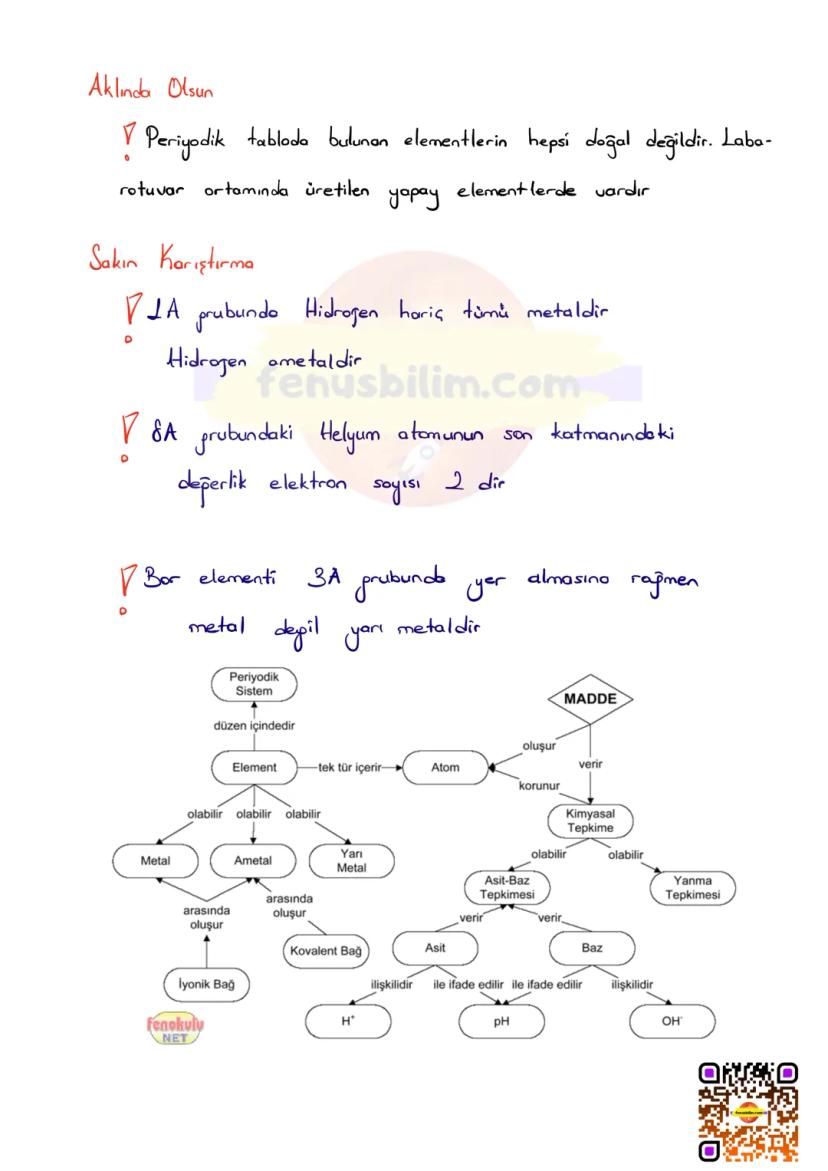 Aklında Olsun
Periyodik tabloda bulunan elementlerin hepsi doğal değildir. Laba-
rotuvar ortamında üretilen yapay elementlerde vardır
Sakın Karıştırma
1A grubunda Hidrojen hariç tümü metaldir
Hidrojen ametaldir
fenusbilim.com
8A grubundaki Helyum atomunun son katmanındaki
değerlik elektron sayısı 2 dir
Bor elementi 3A grubunda yer almasına rağmen
metal değil yarı metaldir
Periyodik
Sistem
MADDE
düzen içindedir
oluşur
verir
Element
tek tür içerir
Atom
korunur
olabilir olabilir olabilir
Kimyasal
Tepkime
Metal
Ametal
Yarı
Metal
olabilir
olabilir
Asit-Baz
Tepkimesi
Yanma
Tepkimesi
arasında
oluşur
arasında
oluşur
verir
verir
Kovalent Bağ
Asit
Baz
İyonik Bağ
ilişkilidir
ile ifade edilir
ile ifade edilir
ilişkilidir
H+
pH
OH-
fenokulu
NET
fenusbilim.com